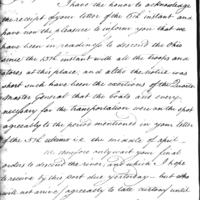 I have the honor to acknowledge
the receipt of your letter of the 15th instant and
have now the pleasure to inform you that we
have been in readiness to descend the Ohio
since the 15th instant with all the troops and
stores at this place, and altho the notice was
short such have been the exertions of the Quarter
Master General that the boats and every
necessary for the transportation were on the spot
agreeably to the period mentioned in your letter
of the 15th ultimo i.e. the middle of april
We therefore only wait your final
orders to descend the river, and which I hope
received by this post due yesterday - but who
will not arrive, agreeably to late custom until